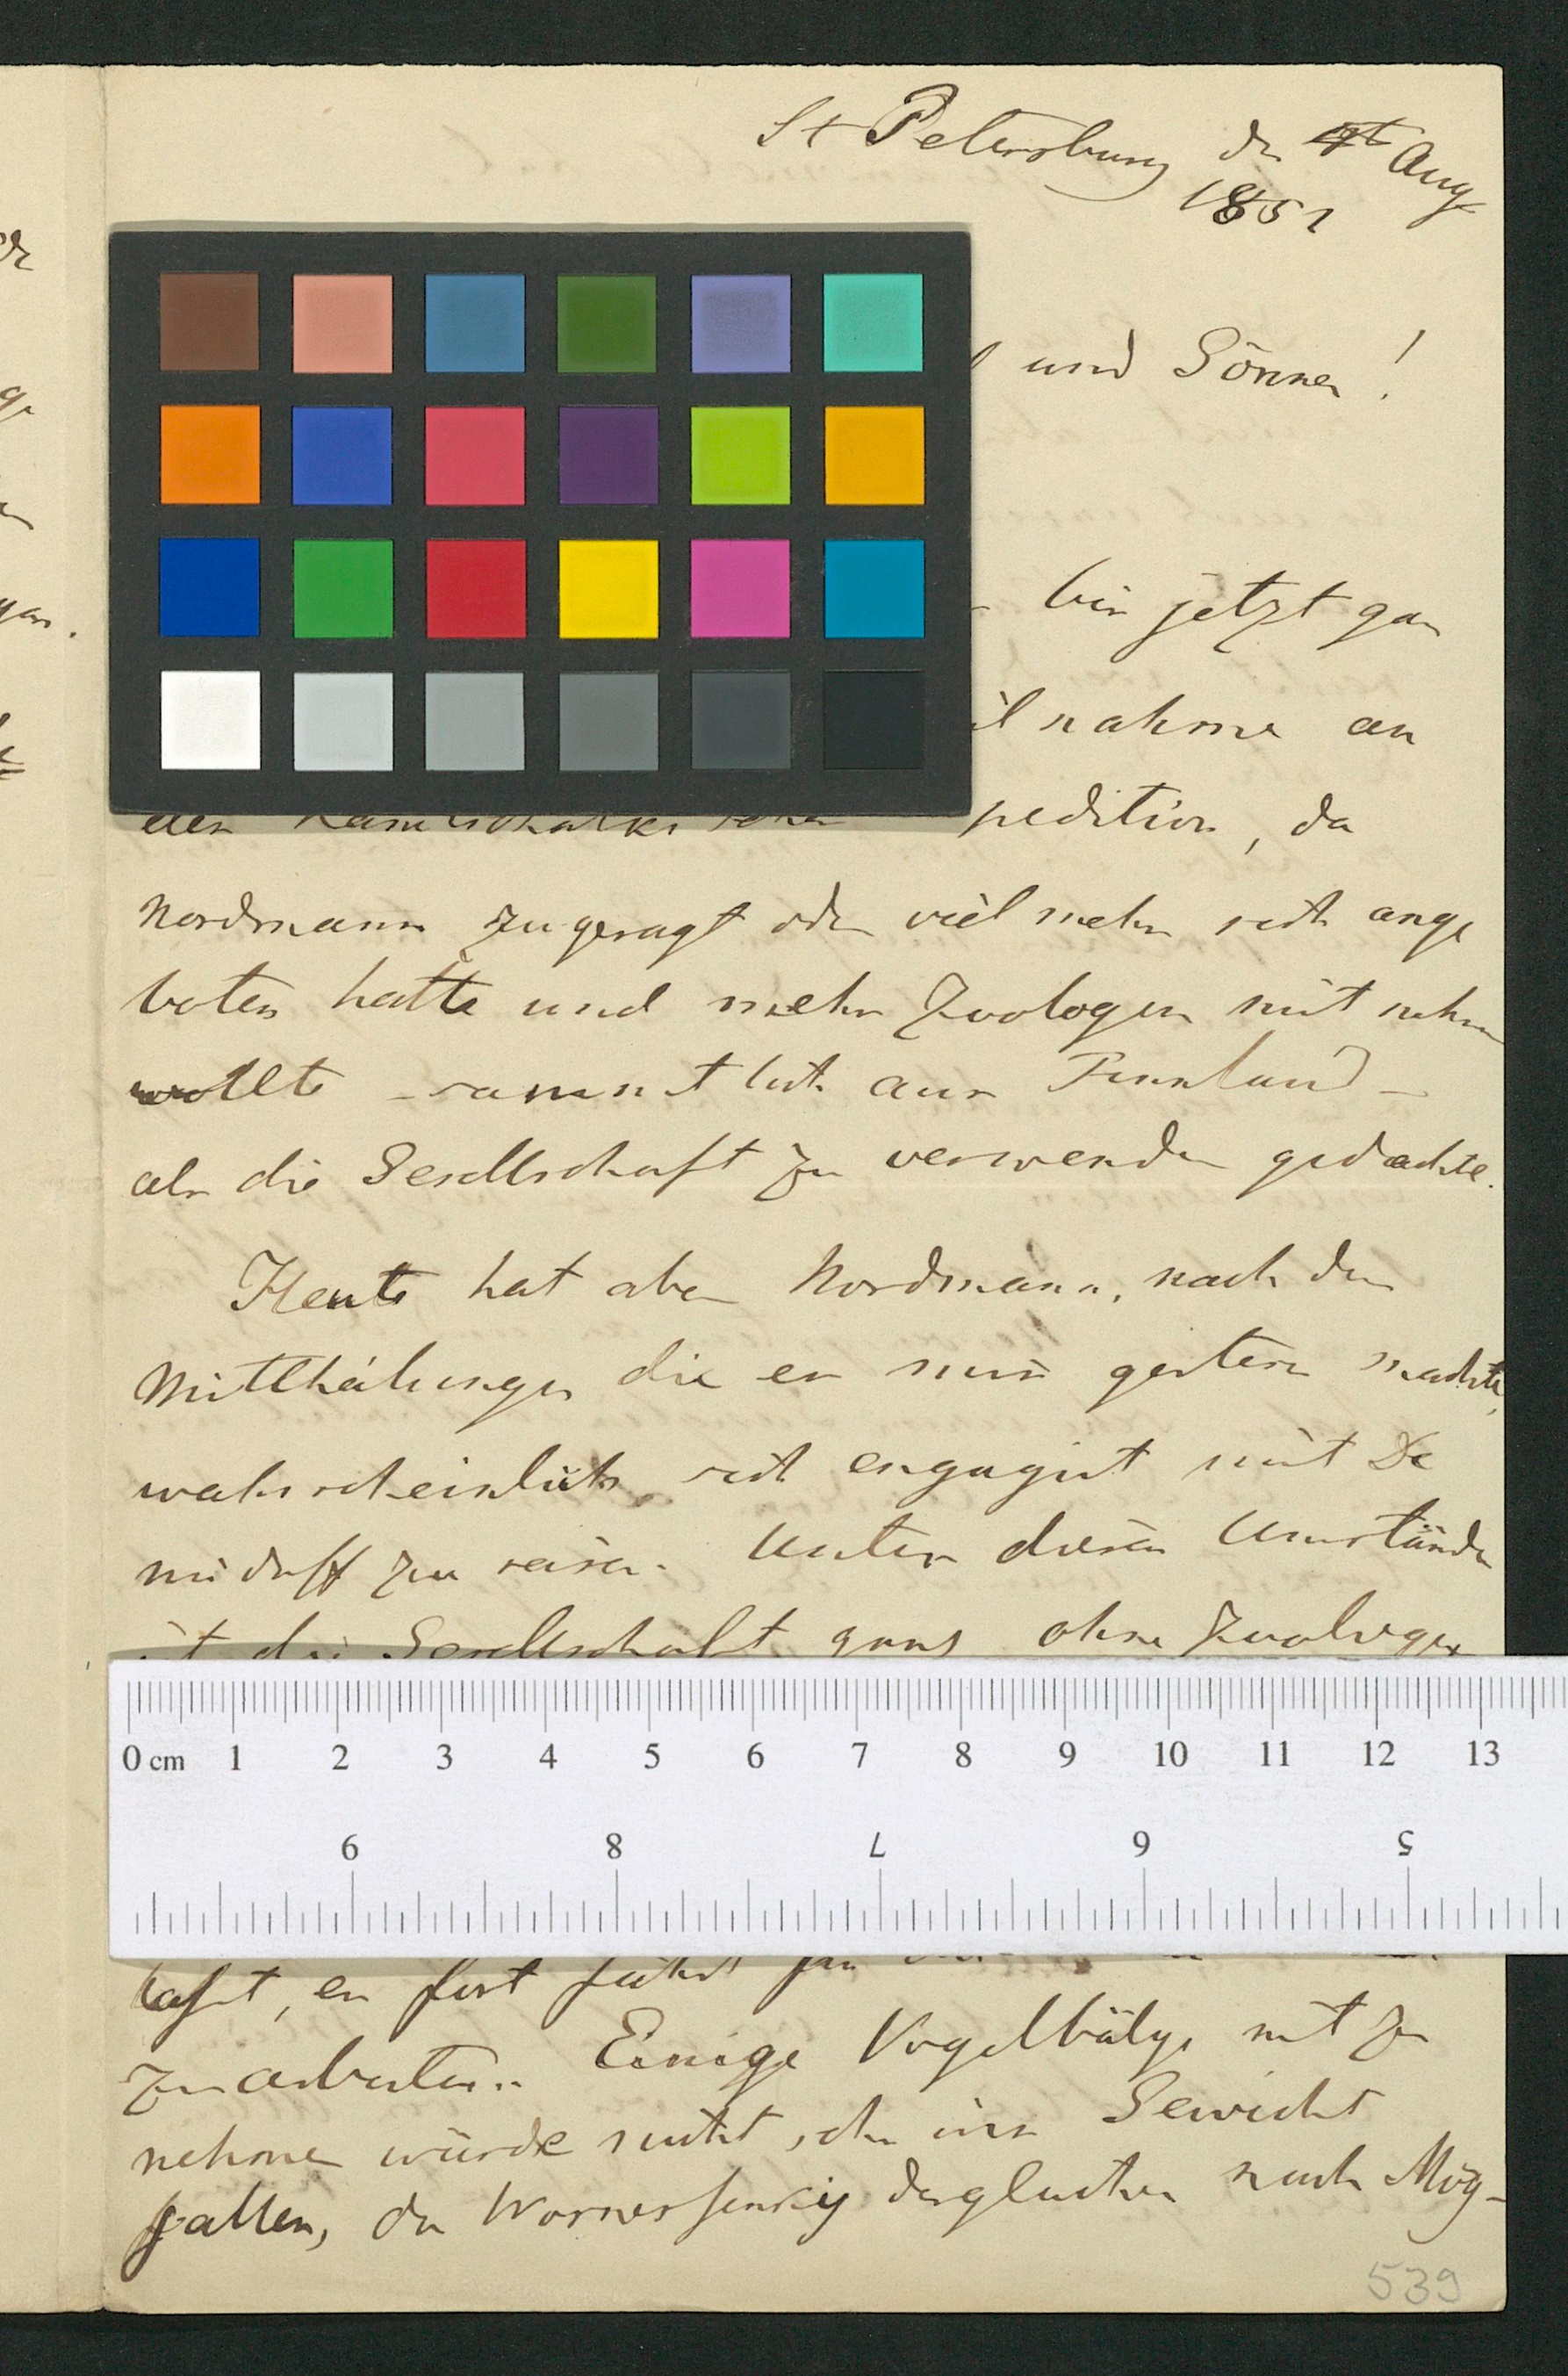 St Petersburg den 4t Aug
1851
und Gönner!
bin jetzt gan
eilnahme an
der Kamtschatkischen pedition, da
Nordmann zugesagt oder viel mehr sich ange
boten hatte und mehr Zoologen mit nehmen
wollte – sammtlich aus Finnland –
als die Gesellschaft zu verwenden gedachte.
Heute hat aber Nordmann, nach den
Mittheilungen die er mir gestern machte,
wahrscheinlich sich engagirt mit De
midoff zu reisen. Unter diesen Umständen
ist die Gesellschaft ganz ohne Zoologen
0 cm 1 2 3 4 5 6 7 8 9 10 11 12 13
9 8 7 6 5
laft, er fort fährt
zu arbeiten. Einige Vogelbälge mit zu
nehmen würde nicht sehr ins Gewicht
fallen, da Wosnessenskij dergleichen nach Mög-
539